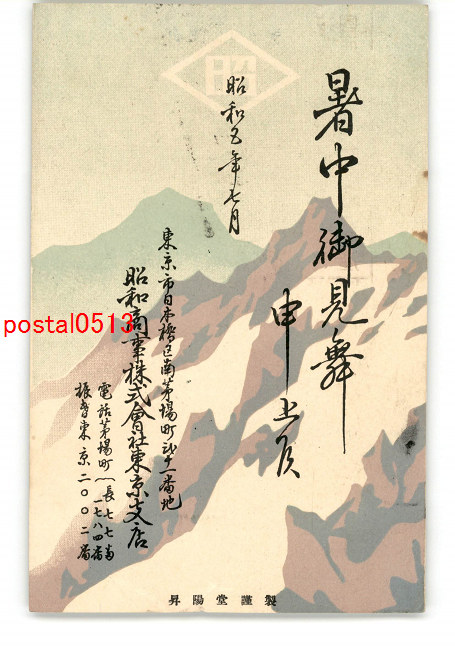 暑中御見舞
申上候
昭和五年七月
東京市日本橋区南茅場町
昭和商事株式會社東京支店
電話茅場町(長七七番
一七八四番
振替東京二〇〇二番
昭
製謹堂陽昇
postal0513